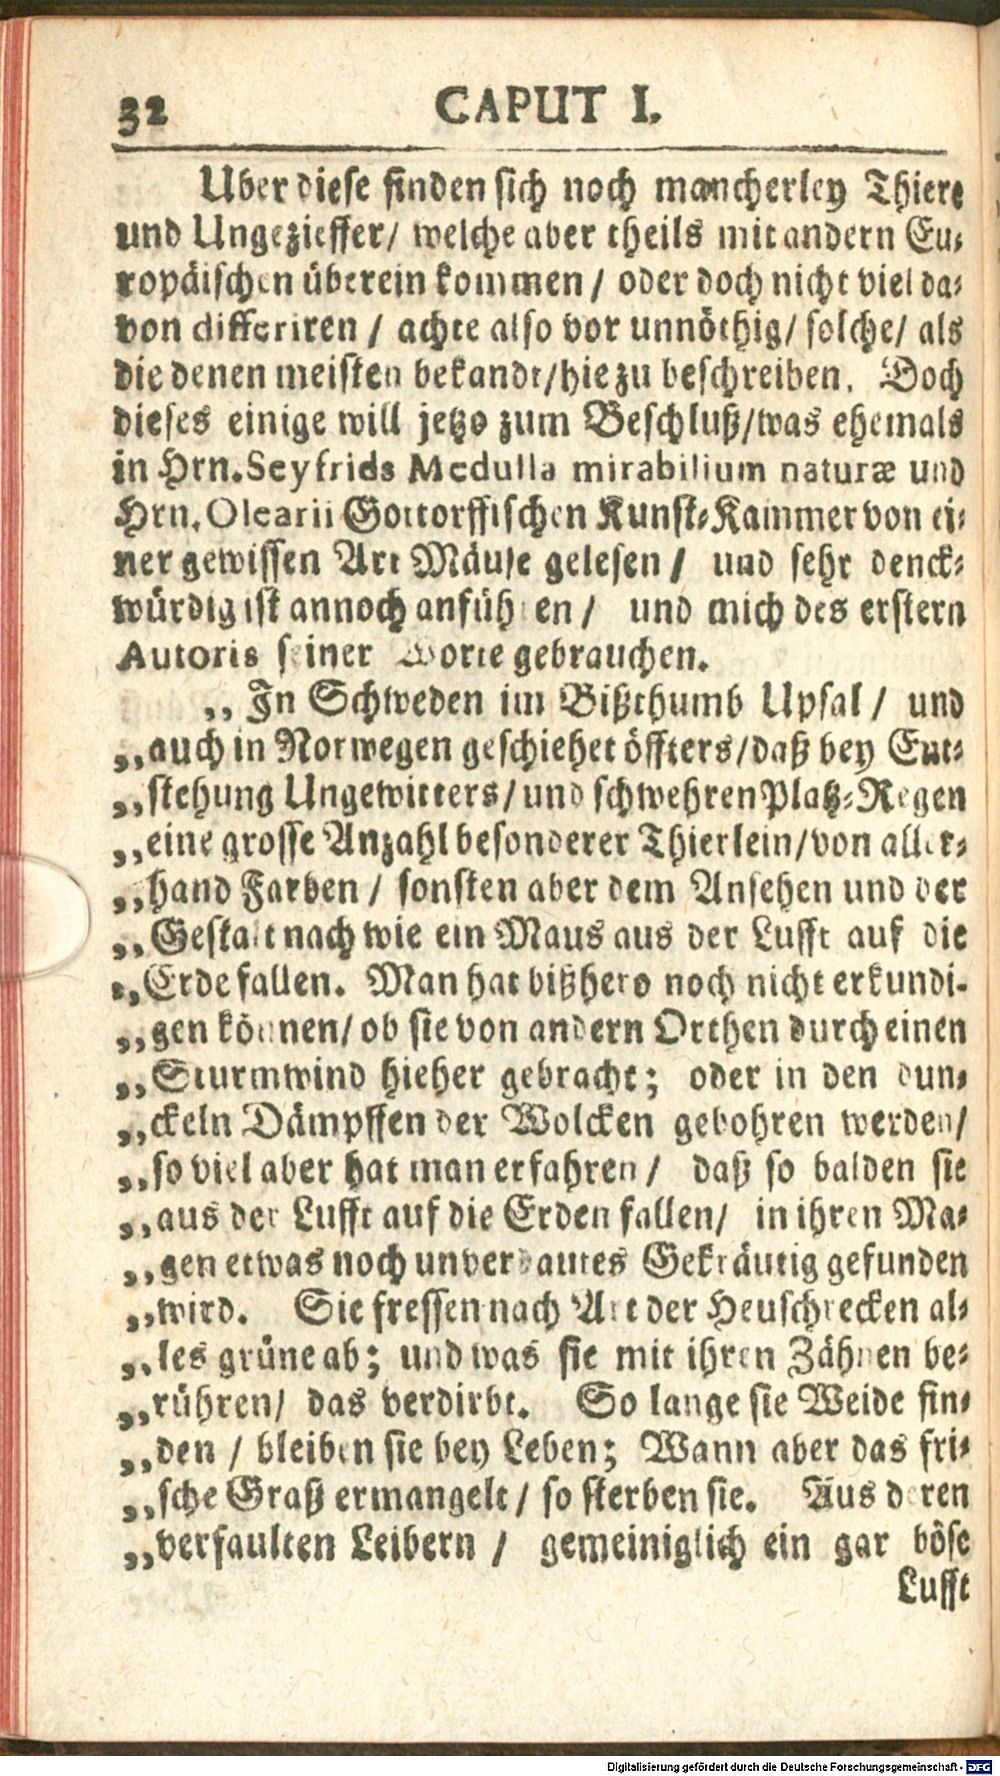 32 CAPUT I.
Uber diese finden sich noch mancherley Thiere
und Ungezieffer/ welche aber theils mit andern Eu-
ropäischen überein kommen / oder doch nicht viel da-
von differiren / achte also vor unnöthig/ solche/ als
die denen meisten bekandt/hie zu beschreiben. Doch
dieses einige will jetzo zum Beschluß/was ehemals
in Hrn. Seyfrids Medulla mirabilium naturæ und
Hrn. Olearii Gottorffischen Kunst-Kammer von ei-
ner gewissen Art Mäuse gelesen / und sehr denck-
würdig ist annoch anführen / und mich des erstern
Autoris seiner Worte gebrauchen.
,, In Schweden im Bißthumb Upsal / und
,,auch in Norwegen geschiehet öffters/daß bey Ent-
,,stehung Ungewitters/und schwehren Platz-Regen
,,eine grosse Anzahl besonderer Thierlein/von aller-
,,hand Farben / sonsten aber dem Ansehen und der
,,Gestalt nach wie ein Maus aus der Lufft auf die
,,Erde fallen. Man hat bißhero noch nicht erkundi-
,,gen können/ ob sie von andern Orthen durch einen
,,Sturmwind hieher gebracht; oder in den dun-
,,ckeln Dämpffen der Wolcken gebohren werden/
,,so viel aber hat man erfahren / daß so balden sie
,,aus der Lufft auf die Erden fallen/ in ihren Ma-
,,gen etwas noch unverdautes Gekräutig gefunden
,,wird. Sie fressen nach Art der Heuschrecken al-
,,les grüne ab; und was sie mit ihren Zähnen be-
,,rühren/ das verdirbt. So lange sie Weide fin-
,,den / bleiben sie bey Leben; Wann aber das fri-
,,sche Graß ermangelt / so sterben sie. Aus deren
,,verfaulten Leibern / gemeiniglich ein gar böse
Lufft
Digitalisierung gefördert durch die Deutsche Forschungsgemeinschaft - DFG